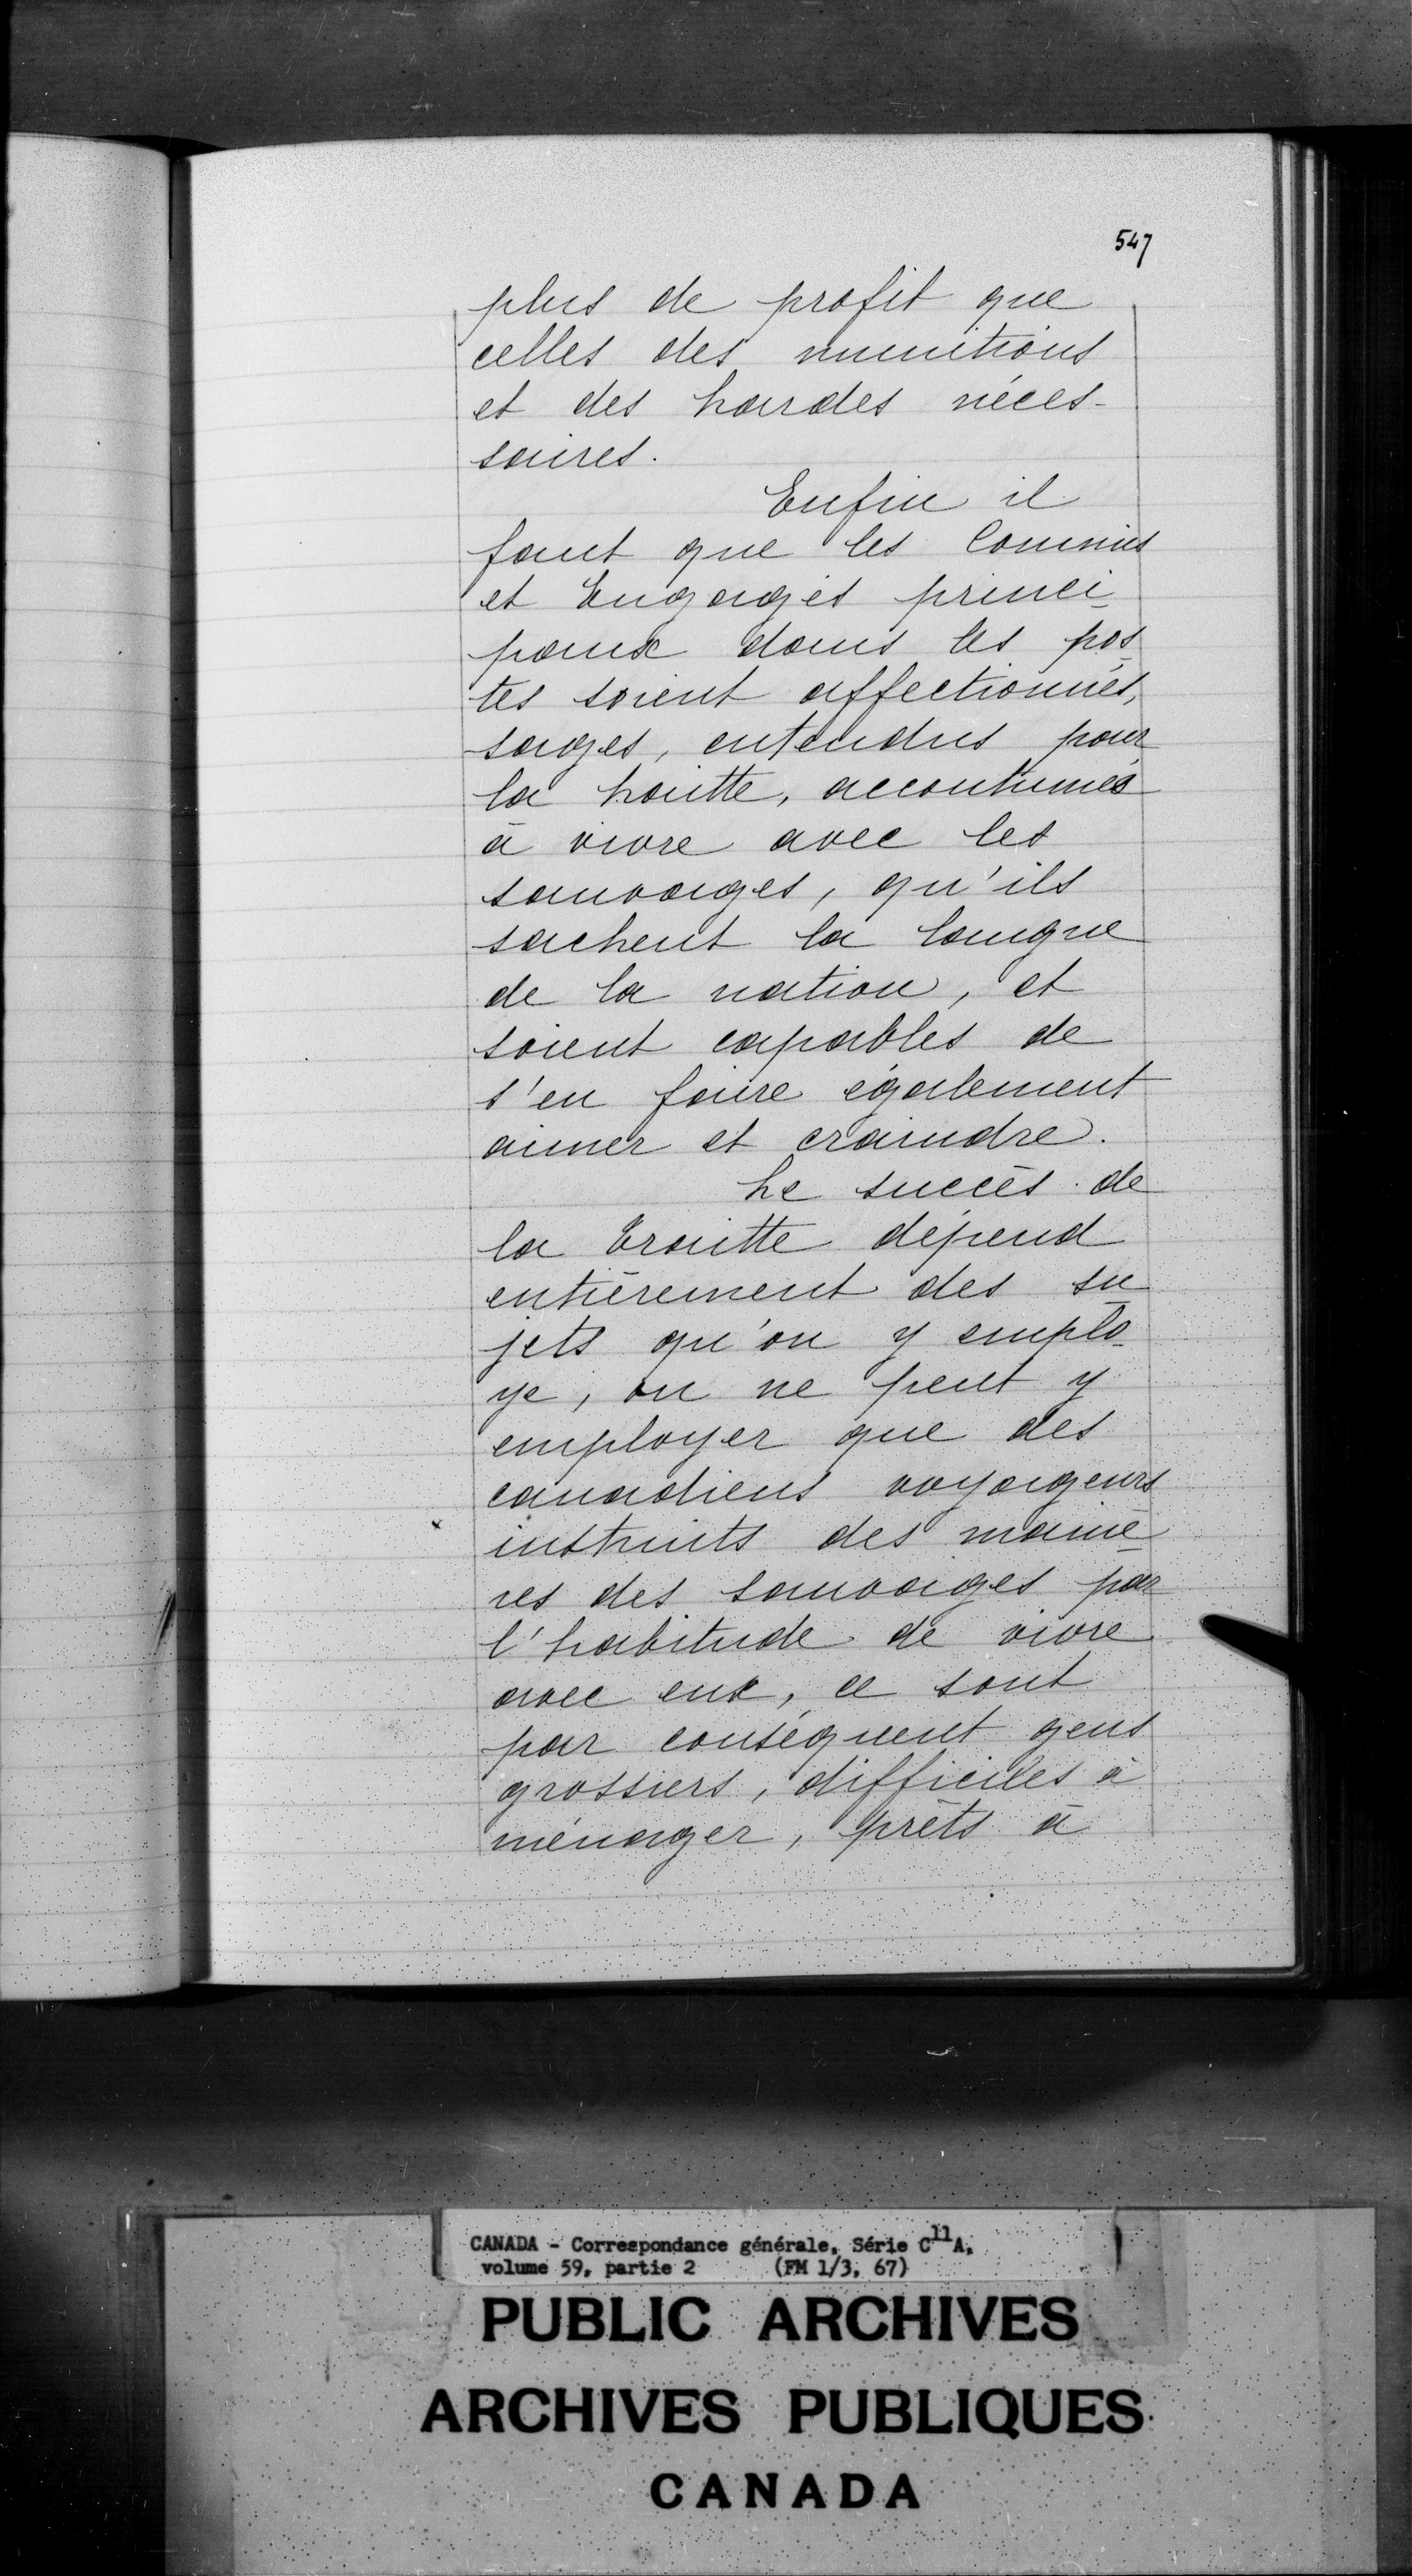 547
plus de profit que
celles des munitions
et des hardes néces-
saires.
Enfin il
faut que les Commis
et Engagés princi-
paux dans les pos-
tes soient affectionnés,
sages, entendus pour
la traitte, accoutumés
à vivre avec les
sauvages, qu'ils
sachent la langue
de la nation, et
soient capables de
s'en faire également
aimer et craindre.
Le succès de
la traitte dépend
entièrement des su-
jets qu'on y emplo-
ye, on ne peut y
employer que des
canadiens voyageurs
instruits des maniè-
res des sauvages par
l'habitude de vivre
avec eux, ce sont
par conséquent gens
grossiers, difficiles à
ménager, prêts à
CANADA - Correspondance générale, Série C11A,
volume 59, partie 2 (FM 1/3, 67)
PUBLIC ARCHIVES
ARCHIVES PUBLIQUES
CANADA